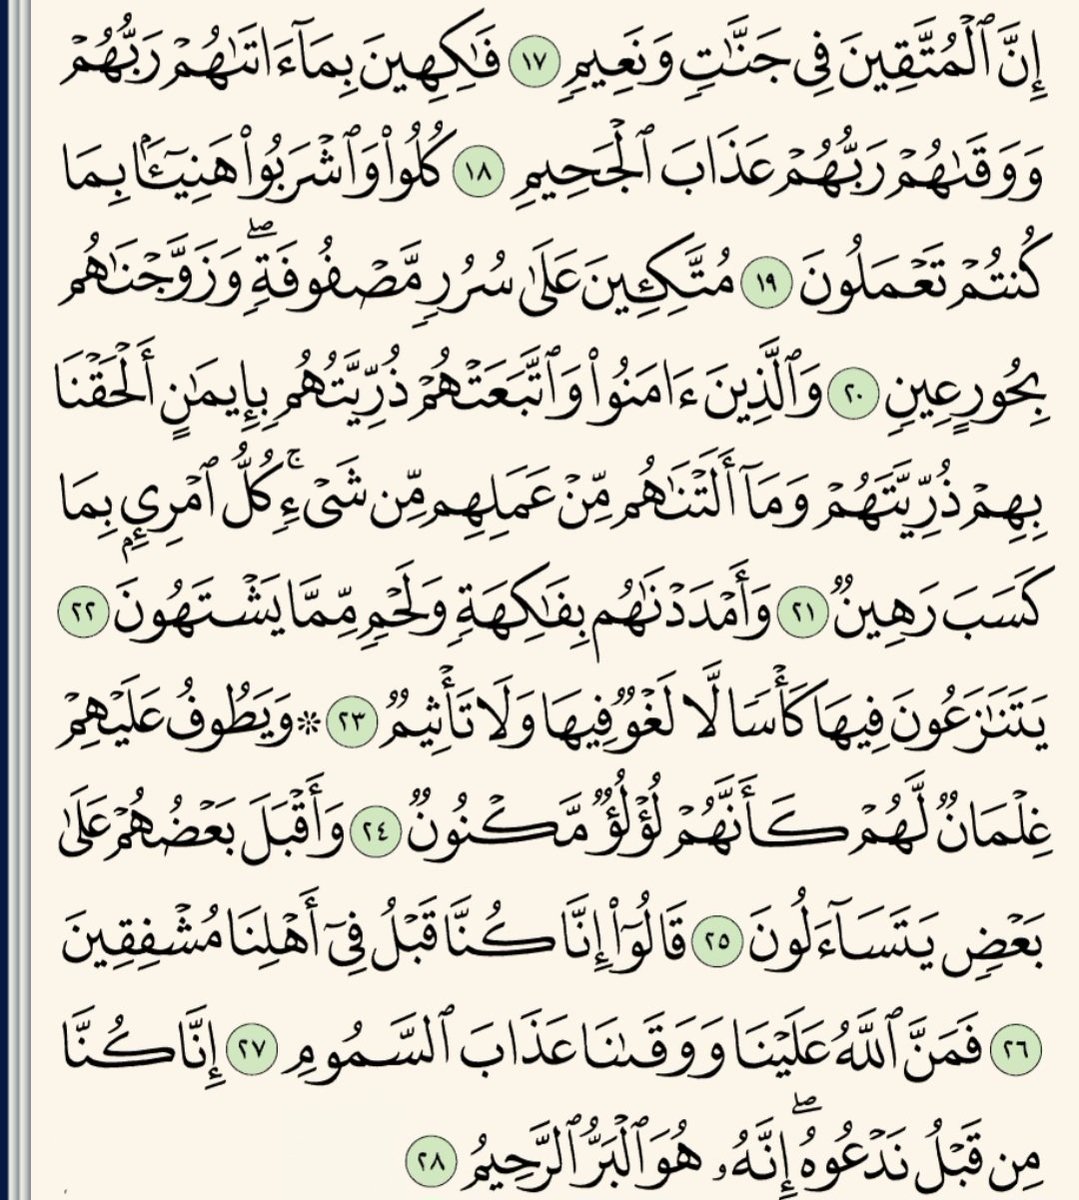 إِنَّ ٱلْمُتَّقِينَ فِى جَنَّٰتٍ وَنَعِيمٍ ١٧ فَٰكِهِينَ بِمَآ ءَاتَىٰهُمْ رَبُّهُمْ
وَوَقَىٰهُمْ رَبُّهُمْ عَذَابَ ٱلْجَحِيمِ ١٨ كُلُوا۟ وَٱشْرَبُوا۟ هَنِيٓـًٔۢا بِمَا
كُنتُمْ تَعْمَلُونَ ١٩ مُتَّكِـِٔينَ عَلَىٰ سُرُرٍ مَّصْفُوفَةٍ ۖ وَزَوَّجْنَٰهُم
بِحُورٍ عِينٍ ٢٠ وَٱلَّذِينَ ءَامَنُوا۟ وَٱتَّبَعَتْهُمْ ذُرِّيَّتُهُم بِإِيمَٰنٍ أَلْحَقْنَا
بِهِمْ ذُرِّيَّتَهُمْ وَمَآ أَلَتْنَٰهُم مِّنْ عَمَلِهِم مِّن شَىْءٍ ۚ كُلُّ ٱمْرِئٍۭ بِمَا
كَسَبَ رَهِينٌ ٢١ وَأَمْدَدْنَٰهُم بِفَٰكِهَةٍ وَلَحْمٍ مِّمَّا يَشْتَهُونَ ٢٢
يَتَنَٰزَعُونَ فِيهَا كَأْسًا لَّا لَغْوٌ فِيهَا وَلَا تَأْثِيمٌ ٢٣ ۞ وَيَطُوفُ عَلَيْهِمْ
غِلْمَانٌ لَّهُمْ كَأَنَّهُمْ لُؤْلُؤٌ مَّكْنُونٌ ٢٤ وَأَقْبَلَ بَعْضُهُمْ عَلَىٰ
بَعْضٍ يَتَسَآءَلُونَ ٢٥ قَالُوٓا۟ إِنَّا كُنَّا قَبْلُ فِىٓ أَهْلِنَا مُشْفِقِينَ
٢٦ فَمَنَّ ٱللَّهُ عَلَيْنَا وَوَقَىٰنَا عَذَابَ ٱلسَّمُومِ ٢٧ إِنَّا كُنَّا
مِن قَبْلُ نَدْعُوهُ ۖ إِنَّهُۥ هُوَ ٱلْبَرُّ ٱلرَّحِيمُ ٢٨